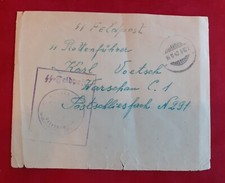 SS Feldpost
SS Rottenführer
Karl Voetsch
Warschau C 1
Postschliessfach A 291
SS-Feldpost